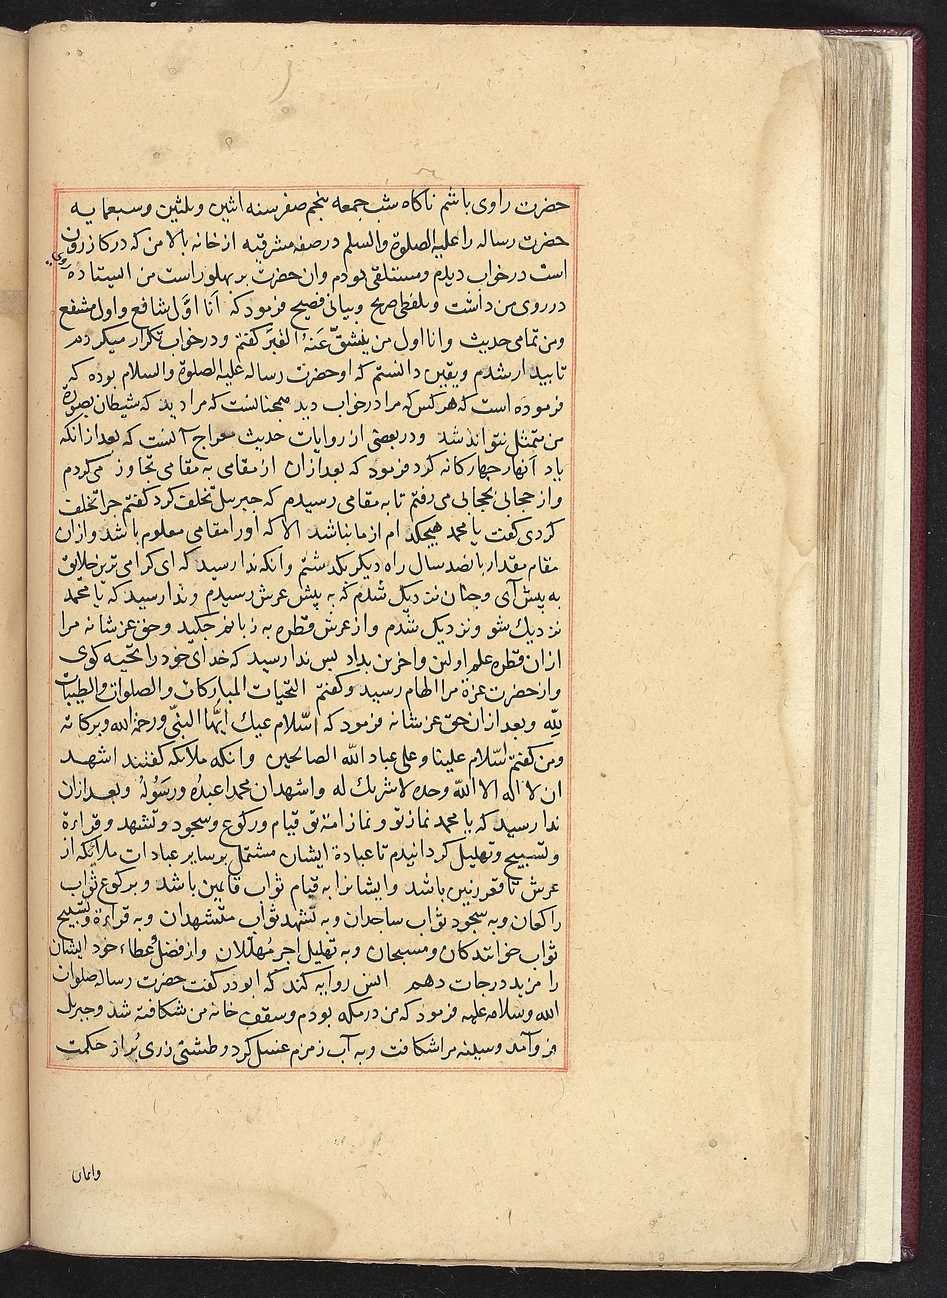 حضرت راوی باشم ناکاه شب جمعه پنجم صفر سنه اثنین و ثلثین و سبعمایه
حضرت رساله را علیه الصلوة والسلم در صفه مشرقیه از خانه بالا من که در کازرون
است در خواب دیدم و مستلقی بودم وان حضرت بر بهلو راست من ایستاده روی
در روی من داشت و بلفظی صریح و بیانی فصیح فرمود که اَنا اوّل شافع و اول مشفع
ومن تمامی حدیث وانا اول من ینشقّ عَنهُ القَبر کفتم و در خواب تکرار میکردم
تا بیدار شدم و یقین دانستم که او حضرت رساله علیه الصلوة والسلام بوده که
فرموده است که هر کس که مرا در خواب دید همجنانست که مرا دید که شیطان بصورة
من متمثل نتواند شد ودر بعضی از روایات حدیث معراج آنست که بعد از انکه
یاد آنهار جهارکانه کرد فرمود که بعد ازان از مقامی به مقامی تجاوز می کردم
واز حجابی بحجابی می رفتم تا به مقامی رسیدم که جبرییل تخلف کرد کفتم جرا تخلف
کردی کفت یا محمد هیجکدام از ما نباشد الا که اورا مقامی معلوم باشد وازان
مقام مقدار بانصد سال راه دیکر بکدشتم وانکه ندا رسید که ای کرامی ترین خلایق
به پیش آی وجنان نزدیک شدم که به پیش عرش رسیدم و ندا رسید که یا محمد
نزدیک شو ونزدیک شدم واز عرش قطره به زبانم جکید وحق عز شانه مرا
ازان قطره علم اولین واخرین بداد بس ندا رسید که خدای خود را تحیه کوی
واز حضرت عزة مرا الهام رسید وکفتم التحیات المبارکات والصلوات والطیبات
لِلّه وبعد ازان حق عز شانه فرمود که السّلام علیك ایهّا النبیّ ورحمة الله وبرکاته
ومن کفتم السّلام علینا وعلی عباد الله الصالحین وانکه ملایکه کفتند اشهد
ان لا اله الا الله وحده لا شریك له واشهد ان محمدا عبدُه ورَسُولهُ وبعد ازان
ندا رسید که یا محمد نماز تو ونماز امة تو قیام ورکوع وسجود وتشهد وقراءة
وتسبیح وتهلیل کردانیدم تا عبادة ایشان مشتمل بر سایر عبادات ملایکه از
عرش تا قعر زمین باشد وایشانرا به قیام ثواب قایمین باشد وبرکوع ثواب
راکعان وبه سجود ثواب ساجدان وبه تشهد ثواب متشهدان وبه قراءة وتسبیح
ثواب خوانندکان ومسبحان وبه تهلیل اجر مُهلّلان واز فضل وعطاء خود ایشان
را مزید درجات دهم انس روایه کند که ابوذر کفت حضرت رساله صلوات
الله وسلامه علیه فرمود که من در مکه بودم وسقف خانه من شکافته شد وجبریل
فرو آمد وسینه مرا شکافت وبه آب زمزم غسل کرد وطشتی زری بُر از حکمت
وایمان